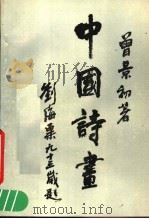 曾景初著
中國詩畫
劉海粟九十三歲題